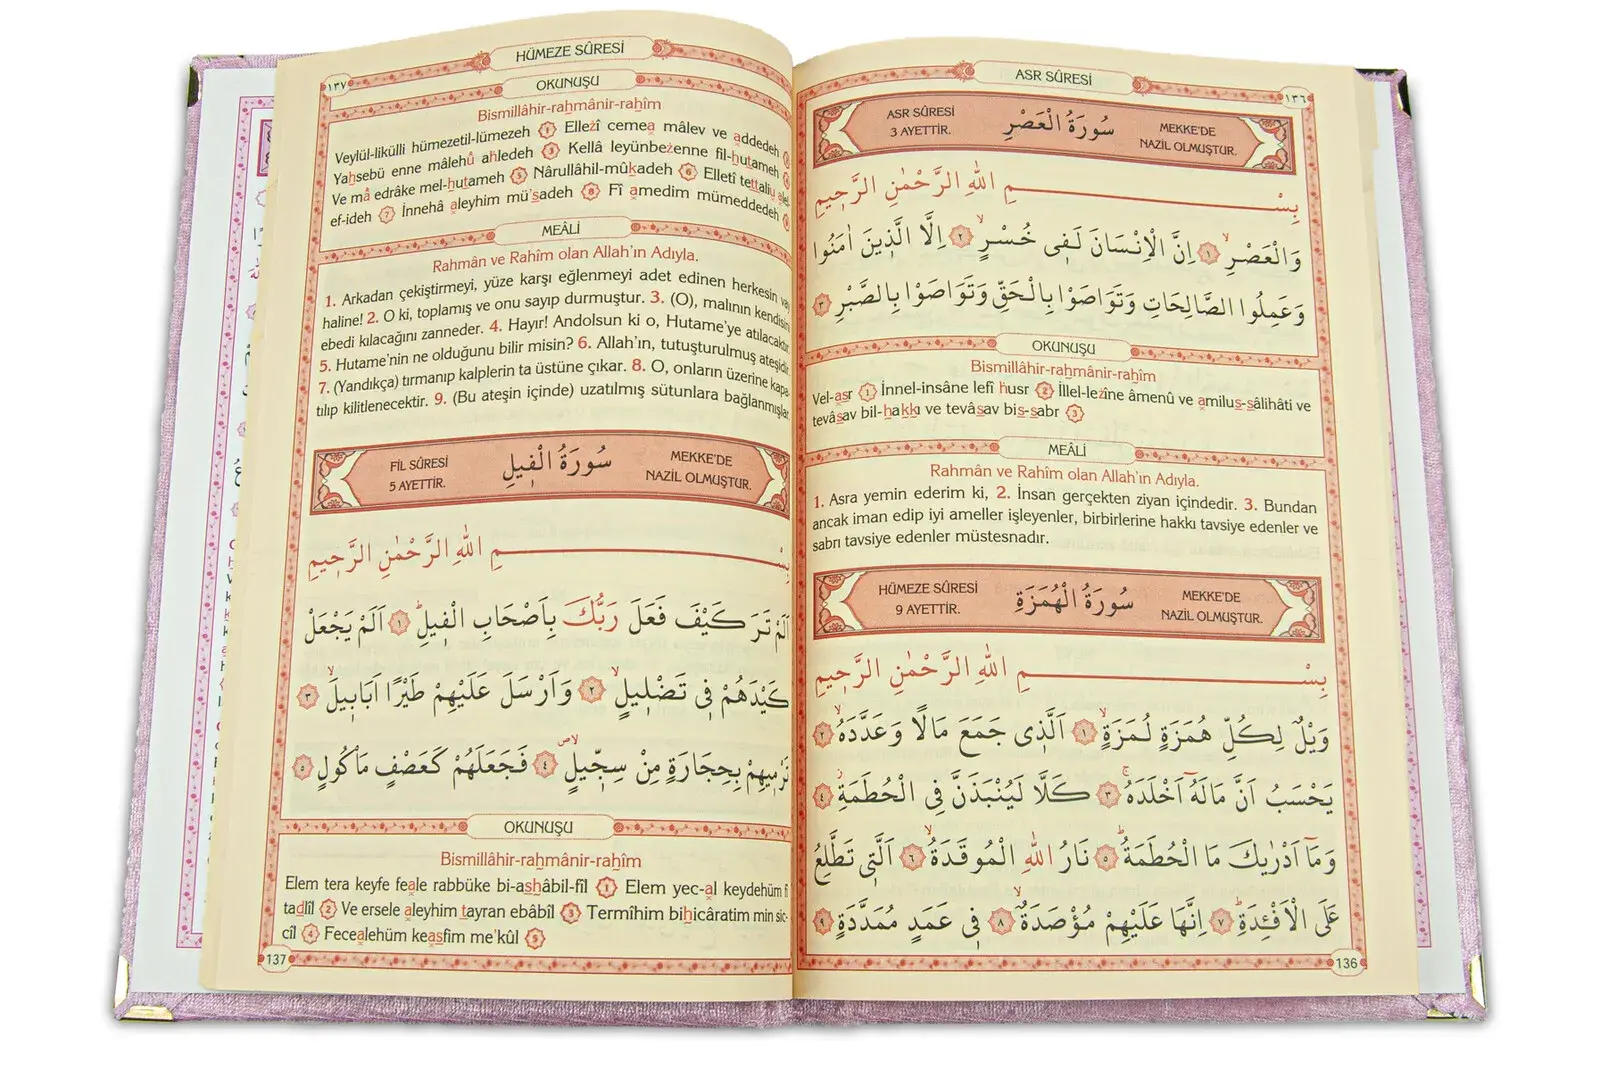 ASR SÛRESİ
١٣٦
ASR SÛRESİ
3 AYETTİR.
سُورَةُ الْعَصْرِ
MEKKE'DE
NAZİL OLMUŞTUR.
بِسْمِ اللهِ الرَّحْمٰنِ الرَّح۪يمِ
وَالْعَصْرِۙ ١ اِنَّ الْاِنْسَانَ لَف۪ي خُسْرٍۙ ٢ اِلَّا الَّذ۪ينَ اٰمَنُوا
وَعَمِلُوا الصَّالِحَاتِ وَتَوَاصَوْا بِالْحَقِّ وَتَوَاصَوْا بِالصَّبْرِ ٣
OKUNUŞU
Bismillâhir-rahmânir-rahîm
Vel-asr 1 İnnel-insâne lefî husr 2 İllel-lezîne âmenû ve amilus-sâlihâti ve
tevâsav bil-hakkı ve tevâsav bis-sabr 3
MEÂLİ
Rahmân ve Rahîm olan Allah'ın Adıyla.
1. Asra yemin ederim ki, 2. İnsan gerçekten ziyan içindedir. 3. Bundan
ancak iman edip iyi ameller işleyenler, birbirlerine hakkı tavsiye edenler ve
sabrı tavsiye edenler müstesnadır.
HÜMEZE SÛRESİ
9 AYETTİR.
سُورَةُ الْهُمَزَةِ
MEKKE'DE
NAZİL OLMUŞTUR.
بِسْمِ اللهِ الرَّحْمٰنِ الرَّح۪يمِ
وَيْلٌ لِكُلِّ هُمَزَةٍ لُمَزَةٍۙ ١ اَلَّذ۪ي جَمَعَ مَالًا وَعَدَّدَهُۙ ٢
يَحْسَبُ اَنَّ مَالَهُٓ اَخْلَدَهُۚ ٣ كَلَّا لَيُنْبَذَنَّ فِي الْحُطَمَةِۘ ٤
وَمَٓا اَدْرٰيكَ مَا الْحُطَمَةُۜ ٥ نَارُ اللهِ الْمُوقَدَةُۙ ٦ اَلَّت۪ي تَطَّلِعُ
عَلَى الْاَفْـِٔدَةِۜ ٧ اِنَّهَا عَلَيْهِمْ مُؤْصَدَةٌۙ ٨ ف۪ي عَمَدٍ مُمَدَّدَةٍ ٩
136
HÜMEZE SÛRESİ
١٣٧
OKUNUŞU
Bismillâhir-rahmânir-rahîm
Veylül-likülli hümezetil-lümezeh 1 Ellezî cemea mâlev ve addedeh 2
Yahsebü enne mâlehû ahledeh 3 Kellâ leyünbezenne fil-hutameh 4
Ve mâ edrâke mel-hutameh 5 Nârullâhil-mûkadeh 6 Elletî tettaliu alel-
ef-ideh 7 İnnehâ aleyhim mü'sadeh 8 Fî amedim mümeddedeh 9
MEÂLİ
Rahmân ve Rahîm olan Allah'ın Adıyla.
1. Arkadan çekiştirmeyi, yüze karşı eğlenmeyi adet edinen herkesin vay
haline! 2. O ki, toplamış ve onu sayıp durmuştur. 3. (O), malının kendisini
ebedi kılacağını zanneder. 4. Hayır! Andolsun ki o, Hutame'ye atılacaktır.
5. Hutame'nin ne olduğunu bilir misin? 6. Allah'ın, tutuşturulmuş ateşidir.
7. (Yandıkça) tırmanıp kalplerin ta üstüne çıkar. 8. O, onların üzerine kapa
tılıp kilitlenecektir. 9. (Bu ateşin içinde) uzatılmış sütunlara bağlanmışlar
FİL SÛRESİ
5 AYETTİR.
سُورَةُ الْف۪يلِ
MEKKE'DE
NAZİL OLMUŞTUR.
بِسْمِ اللهِ الرَّحْمٰنِ الرَّح۪يمِ
اَلَمْ تَرَ كَيْفَ فَعَلَ رَبُّكَ بِاَصْحَابِ الْف۪يلِۜ ١ اَلَمْ يَجْعَلْ
كَيْدَهُمْ ف۪ي تَضْل۪يلٍۙ ٢ وَاَرْسَلَ عَلَيْهِمْ طَيْرًا اَبَاب۪يلَۙ ٣
تَرْم۪يهِمْ بِحِجَارَةٍ مِنْ سِجّ۪يلٍۙۖ ٤ فَجَعَلَهُمْ كَعَصْفٍ مَأْكُولٍ ٥
OKUNUŞU
Bismillâhir-rahmânir-rahîm
Elem tera keyfe feale rabbüke bi-ashâbil-fîl 1 Elem yec-al keydehüm fî
tadlîl 2 Ve ersele aleyhim tayran ebâbîl 3 Termîhim bihicâratim min sic-
cîl 4 Fecealehüm keasfim me'kûl 5
137